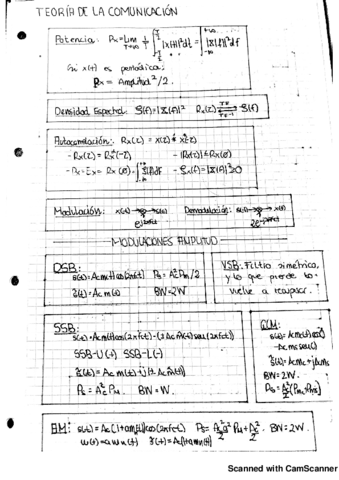 TEORÍA DE LA COMUNICACIÓN
Potencia: Px = lim T→∞ 1/T ∫ |x(t)|² dt = ∫ |X(f)|² df
Si x(t) es periódica:
Px = Amplitud²/2.
Densidad Espectral: S(f) = |X(f)|² Rx(τ) S(f)
Autocorrelación: Rx(τ) = x(τ) * x*(-τ)
- Rx(τ) = Rx*(-τ) - |Rx(τ)| ≤ Rx(0)
- Px = Ex = Rx(0) = ∫ S(f)df - Sx(f) = |X(f)|² ≥ 0
Modulación: x(t) Demodulación: x(t)
MODULACIONES AMPLITUD
DSB:
s(t) = Ac m(t) cos(2πfct) Ps = Ac² Pm/2
s̃(t) = Ac m(t) BW = 2W
VSB: Filtro simétrico,
y lo que pierde lo
vuelve a recuperar.
SSB:
s(t) = Ac m(t) cos(2πfct) - (± Ac m̂(t) sen(2πfct))
SSB-U (+) SSB-L (-)
s̃(t) = Ac m(t) + j(± Ac m̂(t))
Ps = Ac² Pm BW = W.
QAM:
BW = 2W
AM: s(t) = Ac(1+am(t))cos(2πfct) Ps = Ac²/2 a² Pm + Ac²/2. BW = 2W.
s̃(t) = Ac(1+amn(t))
Scanned with CamScanner